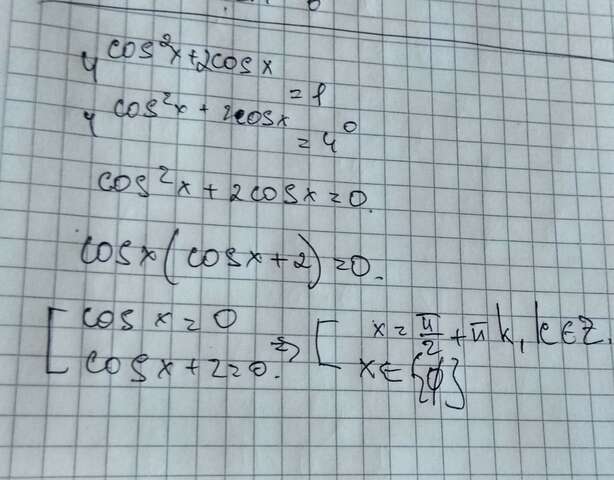 4^{cos²x+2cosx} = 1
4^{cos²x + 2cosx} = 4⁰
cos²x + 2cosx = 0.
cosx(cosx+2) = 0.
[ cos x = 0 ⇒ [ x = π/2 + πk, k∈Z.
cosx + 2 = 0. x ∈ {∅}